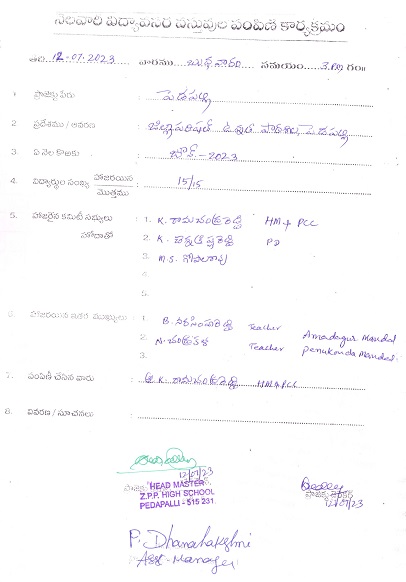 నెలవారి విద్యావసర వస్తువుల పంపిణి కార్యక్రమం
తేది 12-07-2023 వారము బుధవారం సమయం 3.00 గం॥
1 ప్రాజెక్టు పేరు : పెడపల్లి
2. ప్రదేశము / ఆవరణ : జిల్లా పరిషత్ ఉన్నత పాఠశాల, పెడపల్లి
3. ఏ నెల కొరకు : జూన్ - 2023
4. విద్యార్థుల సంఖ్య హాజరయిన మొత్తము : 15/15
5. హాజరైన కమిటి సభ్యులు హోదాతో : 1. K. రామచంద్రారెడ్డి HM & PCC
2. K.
3. M.S. గోపాలరావు
4.
5.
6. హాజరయిన ఇతర : 1. B. నరసింహారెడ్డి Teacher Amadagur Mandal
2. N. చంద్రకళ Teacher Penukonda Mandal.
3.
7. పంపిణీ చేసిన వారు : K. రామచంద్రారెడ్డి HM & PCC
8. వివరణ / సూచనలు :
12/07/23
HEAD MASTER
Z.P.P. HIGH SCHOOL
PEDAPALLI - 515 231.
12/07/23
P. Dhanalakshmi
Asst - Manager